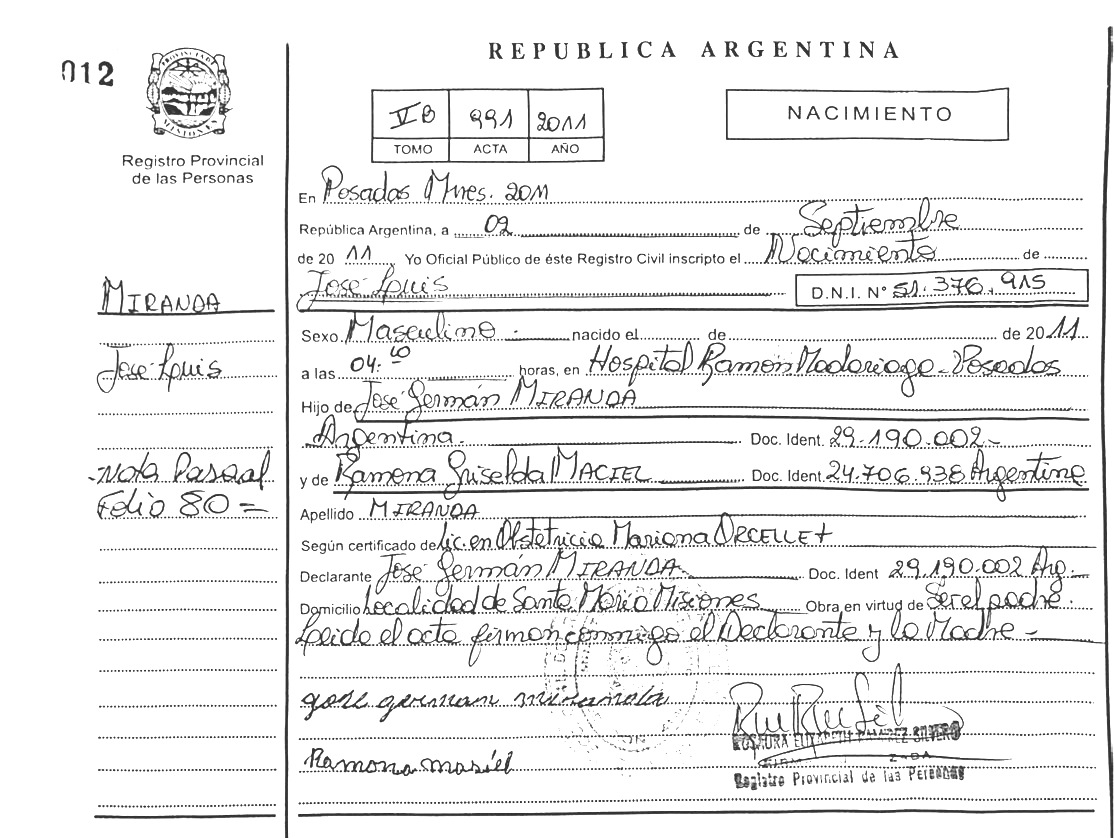 REPUBLICA ARGENTINA
012
PROVINCIA DE
MISIONES
Registro Provincial
de las Personas
VB 991 2011
TOMO ACTA AÑO
NACIMIENTO
En Posadas Mnes. 2011
República Argentina, a 02 de Septiembre
de 2011 Yo Oficial Público de éste Registro Civil inscripto el Nacimiento de
José Luis D.N.I. N° 51.376.915
Sexo Masculino nacido el de de 2011
a las 04: horas, en Hospital Ramon Madariaga - Posadas
Hijo de José Germán MIRANDA
Argentina. Doc. Ident. 29.190.002-
y de Ramona Griselda MACIEL Doc. Ident. 24.706.938 Argentina
Apellido MIRANDA
Según certificado de Lic. en Obstetricia Mariana ORCELLET
Declarante José Germán MIRANDA Doc. Ident 29.190.002 Arg.
Domicilio Localidad de Santa María Misiones Obra en virtud de Ser el padre.
Leida el acta firman conmigo el Declarante y la Madre -
MIRANDA
José Luis
-Nota Pasaal
Folio 80 =
jose german miranda
Ramona masiel
ROSAURA ELIZABETH RAMIREZ SILVERO
Registro Provincial de las Personas